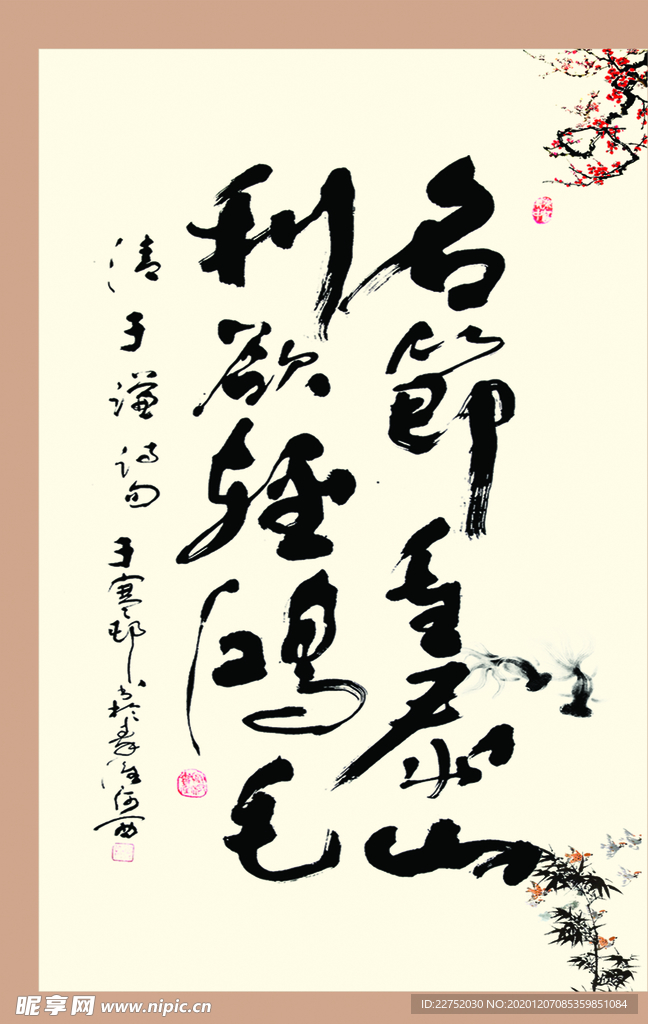 名節重泰山
利欲輕鴻毛
清于謙詩句
于寒邨
昵享网 www.nipic.cn
ID:22752030 NO:20201207085359851084